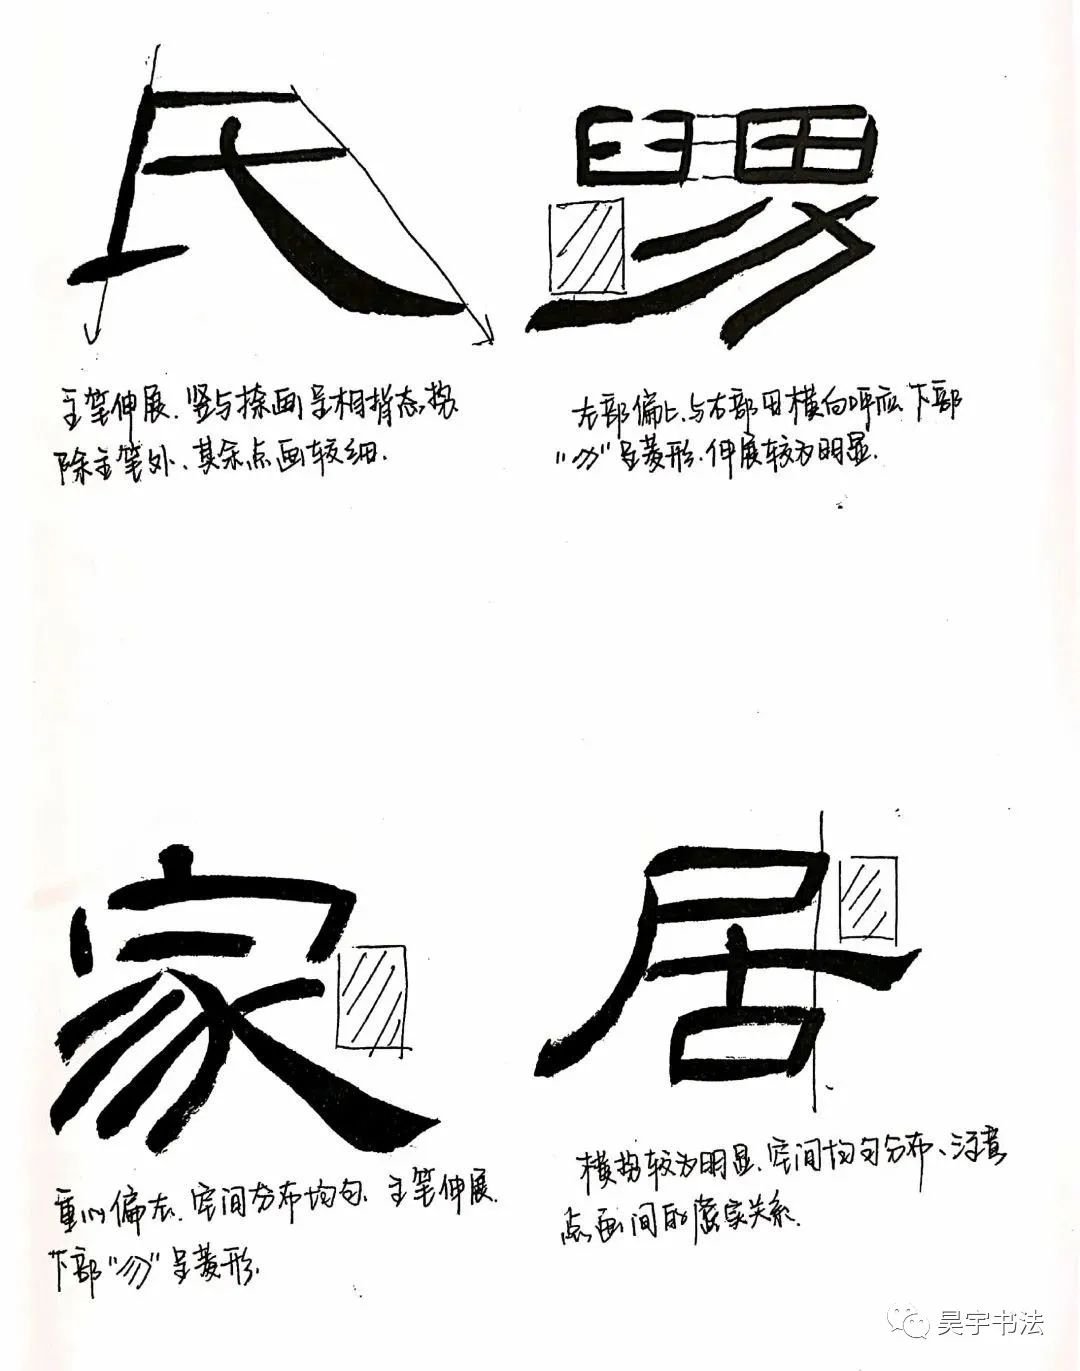 氏
主笔伸展.竖与捺画呈相背态势.
除主笔外、其余点画较细.
舅
左部偏上.与右部田横向呼应.下部
“勿”呈菱形.伸展较为明显.
家
重心偏左.空间分布均匀.主笔伸展.
下部“勿”呈菱形.
居
横势较为明显.空间均匀分布、注意
点画间的虚实关系.
昊宇书法